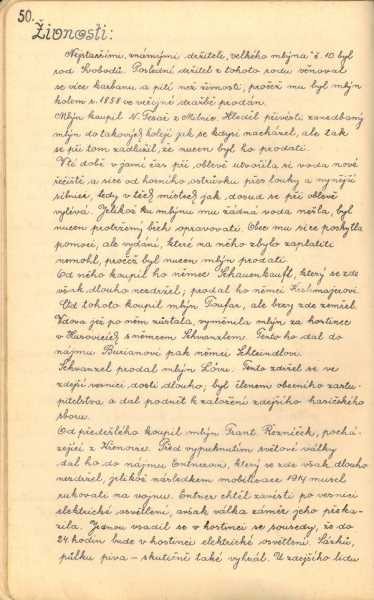 50.
Živnosti:
Nejstaršími, známými držiteli "velkého mlýna" č. 10 byl
rod Svobodů. Poslední držitel z tohoto rodu věnoval
se více karbanu a pití než živnosti, pročež mu byl mlýn
kolem r. 1858 ve veřejné dražbě prodán.
Mlýn koupil N. Tesař z Milnic. Hleděl přivésti zanedbaný
mlýn do takových kolejí jak se kdysi nacházel, ale tak
se při tom zadlužil, že nucen byl ho prodati.
V té době v jarní čas při oblevě utvořila si voda nové
řečiště a sice od horního ostrůvku přes louky a nynější
silnici, tedy v těch místech jak dosud se při oblevě
vylévá. Jelikož ku mlýnu mu žádná voda nešla, byl
nucen potržený břeh opravovati. Obec mu sice poskytla
pomoci, ale vydání, které na něho zbylo zaplatiti
nemohl, pročež byl nucen mlýn prodati.
Od něho koupil ho němec Schauenkauft, který se zde
však dlouho nezdržel; prodal ho němci
Od tohoto koupil mlýn Toufar, ale brzy zde zemřel.
Vdova jež po něm zůstala, vyměnila mlýn za hostinec
v s němcem Schvanzlem. Tento ho dal do
nájmu Burianovi pak němci Schteindlovi.
Schvanzel prodal mlýn Tento zdržel se ve
zdejší vesnici dosti dlouho, byl členem obecního zastu-
pitelstva a dal podnět k založení zdejšího hasičského
sboru.
Od předešlého koupil mlýn Frant. Řezníček, pochá-
zející z Před vypuknutím světové války
dal ho do nájmu Entnerovi, který se zde však dlouho
nezdržel, jelikož následkem mobilisace 1914 musel
rukovati na vojnu. Entner chtěl zavésti po vesnici
elektrické osvětlení, avšak válka záměr jeho překa-
zila. Jednou vsadil se v hostinci se sousedy, že do
24. hodin bude v hostinci elektrické osvětlení. Sázku,
půlku piva – skutečně také vyhrál. U zdejšího lidu